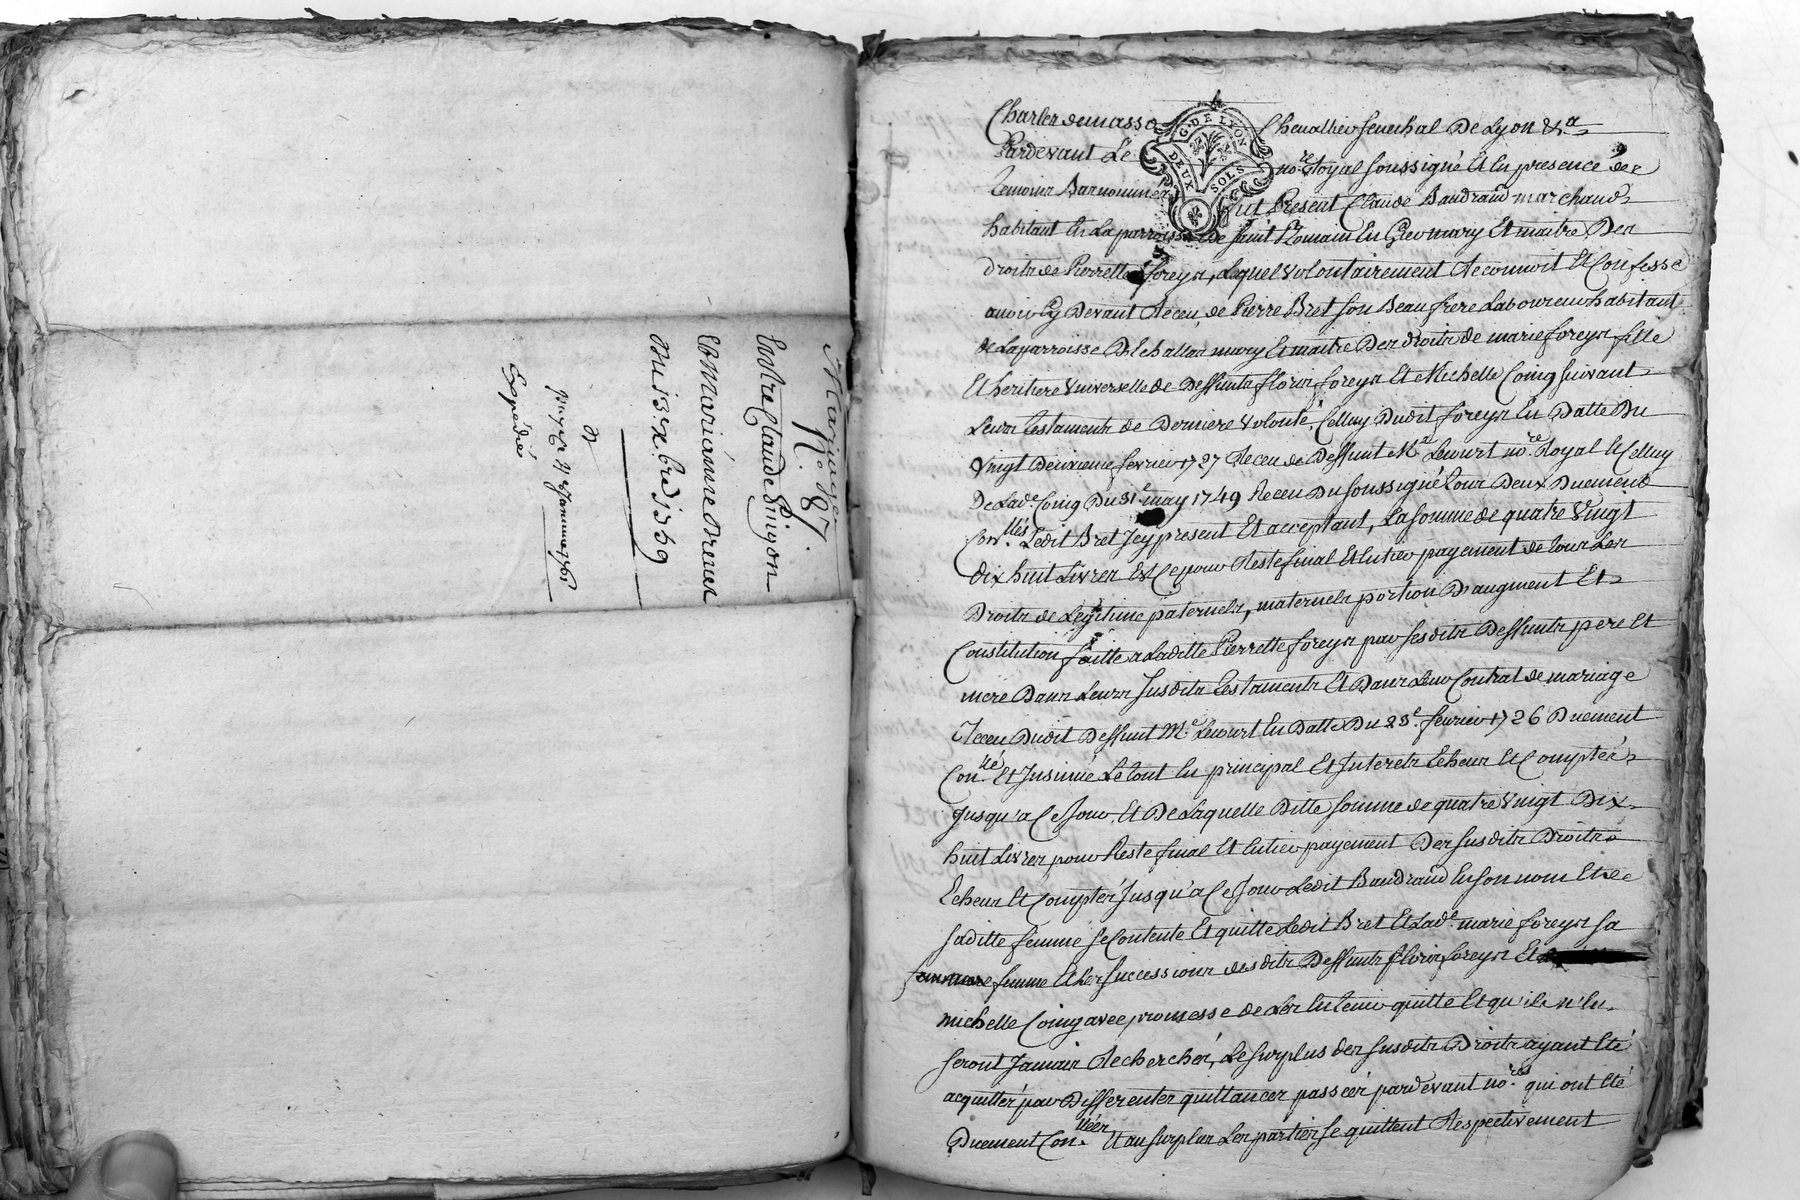 Mariage
N.º 87.
Entre Claude Pinjon
Et Marianne Drenet
Du 13.e x.bre 1759
Expédié
Charles demasso Chevallier senechal De Lyon &.a
G. DE LYON
DEUX SOLS
Pardevant Le no.re Royal soussigné Et En presence des
temoins Bas nommés fut Present Claude Baudrand marchand
habitant En La parroisse De saint Romain En Gier mary Et maitre Des
droits de Pierrette foreys, Lequel Volontairement Reconnoit Et Confesse
avoir Cy Devant Receu de Pierre Bret son Beau frere Laboureur habitant
de La parroisse D'Echallas mary Et maitre Des droits de marie foreys fille
Et heritiere Universelle de Deffunts floris foreys Et Michelle Coing suivant
Leurs testaments de Derniere Volonté, Celluy Dudit foreys En Datte Du
Vingt Deuxieme fevrier 1727 Receu de Deffunt M.e Lecourt no.re Royal Et Celluy
De Lad.e Coing Du 31.e may 1749 Receu Du soussigné tous Deux Duement
Con.llés Ledit Bret Icy present Et acceptant, La somme de quatre Vingt
dix huit Livres Et Ce pour Reste final Et Entier payement de tous Les
Droits de Legitime paternels, maternels portion D'augment Et
Constitution faitte a Laditte Pierrette foreys par sesdits Deffunts pere Et
mere Dans Leurs susdits testaments Et Dans Leur Contrat de mariage
Receu Dudit Deffunt M.e Lecourt En Datte Du 23.e fevrier 1726 Duement
Con.llé Et Insinué Le tout En principal Et Interets Echeus Et Comptés
jusqu'a Ce Jour. Et De Laquelle Ditte somme de quatre Vingt Dix
huit Livres pour Reste final Et Entier payement Des susdits Droits
Echeus Et Comptés Jusqu'a Ce Jour Ledit Baudrand En son nom Et de
saditte femme se Contente Et quitte Ledit Bret Et Lad.e marie foreys sa
femme Et Les successions desdits Deffunts floris foreys Et
michelle Coing avec promesse de Les En tenir quitte Et qu'ils n'En
seront Jamais Recherchés, Le surplus des susdits Droits ayant Eté
acquittés par Differentes quittances passées pardevant no.res qui ont Eté
Duement Con.llées Et au surplus Les parties se quittent Respectivement